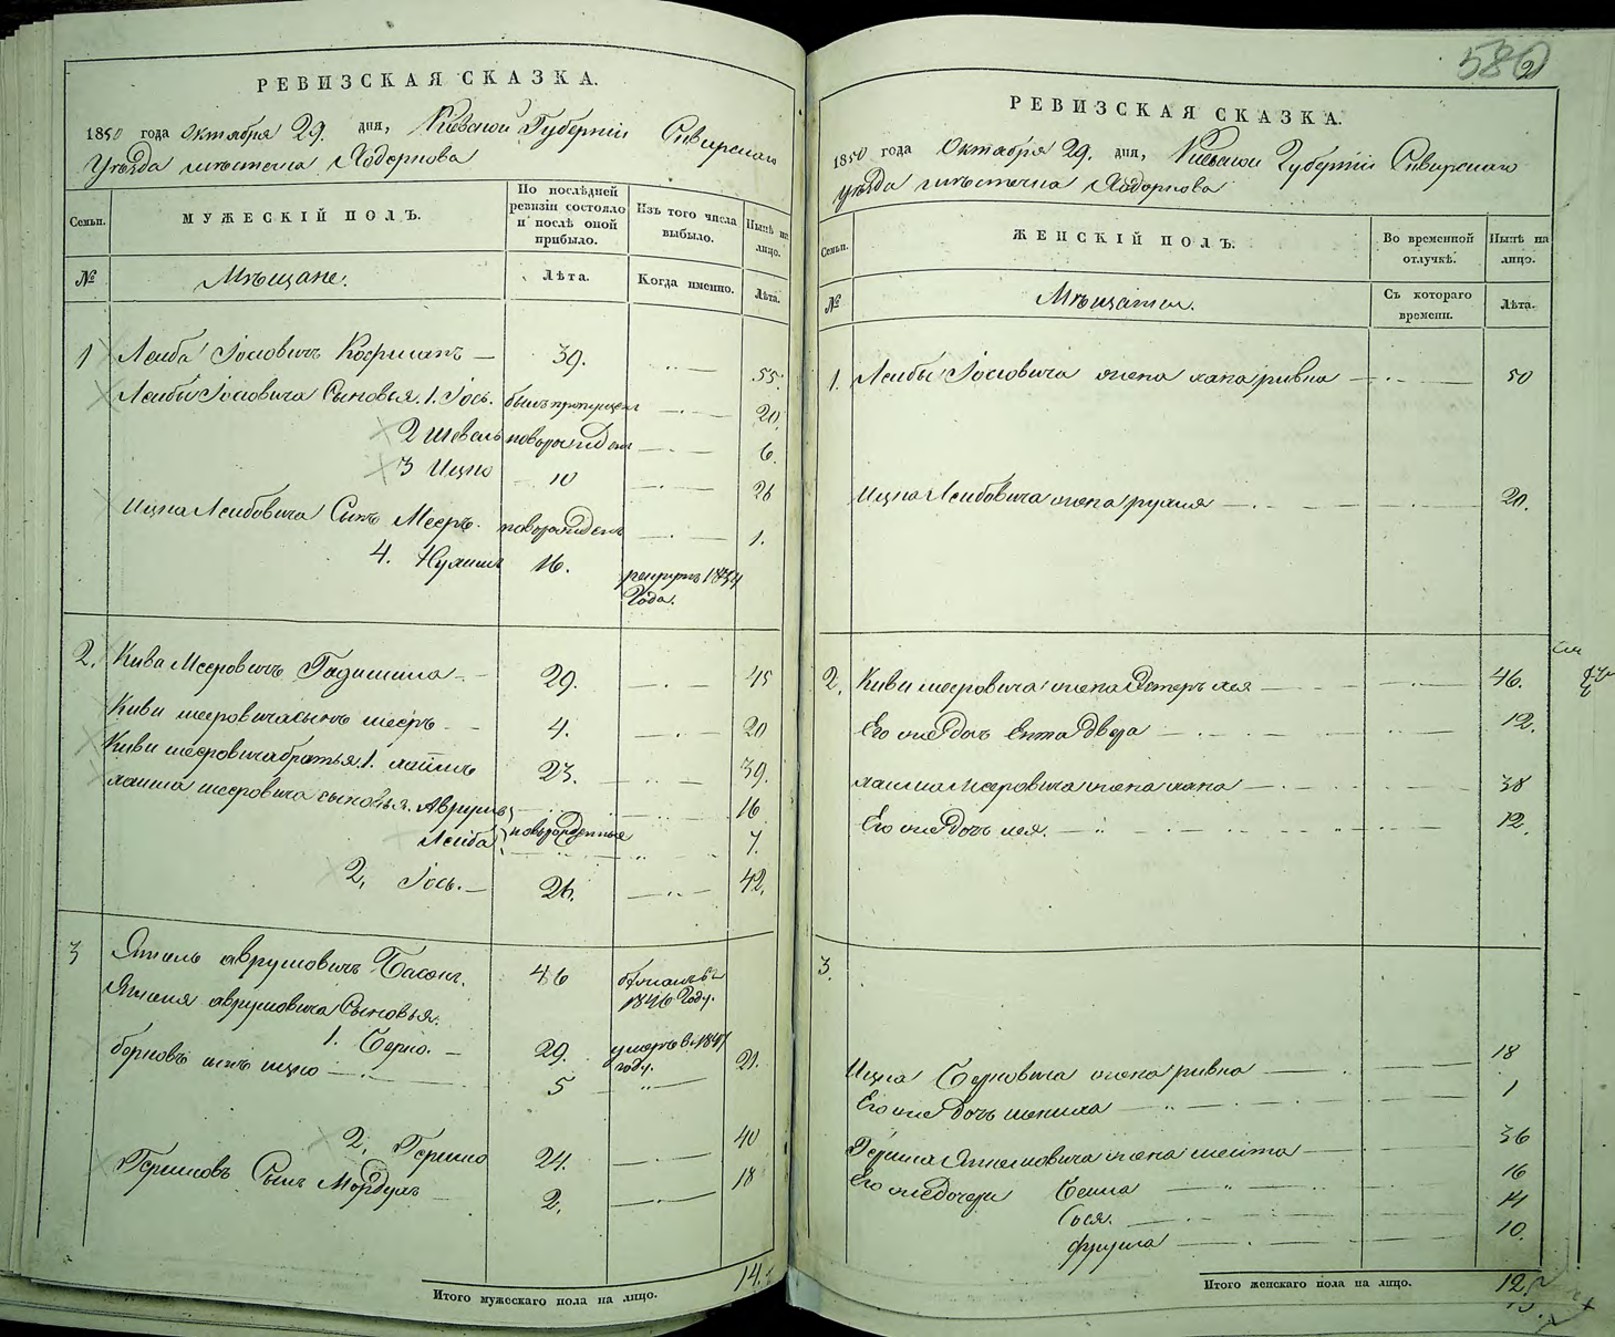 РЕВИЗСКАЯ СКАЗКА.
1850 года Октября 29. дня, Киевской Губерніи Сквирскаго
Уѣзда мѣстечка Ходоркова
Семьи.
МУЖЕСКІЙ ПОЛЪ.
По послѣдней ревизіи состояло и послѣ оной прибыло.
Изъ того числа выбыло.
Нынѣ на лицо.
№
Мѣщане.
Лѣта.
Когда именно.
Лѣта.
1 Лейба Іосіовичъ Кофманъ — 39. 55.
Лейбы Іосіовича Сыновья. 1. Іось. былъ пропущенъ 20.
2 Шевель новорожденъ 6.
3 Ицко 10 26
Ицка Лейбовича Сынъ Мееръ. новорожденъ 1.
4. Нухимъ 16. рекрутъ 1834
Года.
2. Кива Мееровичъ 29. 45
Киви мееровича сынъ мееръ 4. 20
Киви мееровича братья. 1. хаимъ 23. 39.
хаима мееровича сыновья. Аврумъ 16
Лейба новорожденные 7.
2. Іось. — 26. 42.
3 Янкель аврумовичъ 46
1846 Году.
Янкеля аврумовича Сыновья.
1. Берко. — 29. умеръ въ 1847
году.
берковъ сынъ ицко 5 21.
2. Гершко 24. 40
Гершковъ Сынъ Мордухъ 2. 18
Итого мужескаго пола на лицо. 14.
580
РЕВИЗСКАЯ СКАЗКА.
1850 года Октября 29. дня, Киевской Губерніи Сквирскаго
уѣзда мѣстечка Ходоркова
Семьи.
ЖЕНСКІЙ ПОЛЪ.
Во временной отлучкѣ.
Нынѣ на лицо.
№
Мѣщанки.
Съ котораго времени.
Лѣта.
1. Лейбы Іосіовича жена хана ривка 50
Ицка Лейбовича жена рухля 20.
2. Киви мееровича жена Эстеръ хая 46.
Его же дочь Ента Двора 12.
хаима Мееровича жена хана 38
Его же дочь лея. 12.
3.
Ицка Берковича жена ривка 18
Его же дочь 1
Гершка Янкелевича жена 36
Его же дочери Бейла 16
Сося. 14
фрума 10.
Итого женскаго пола на лицо. 12.